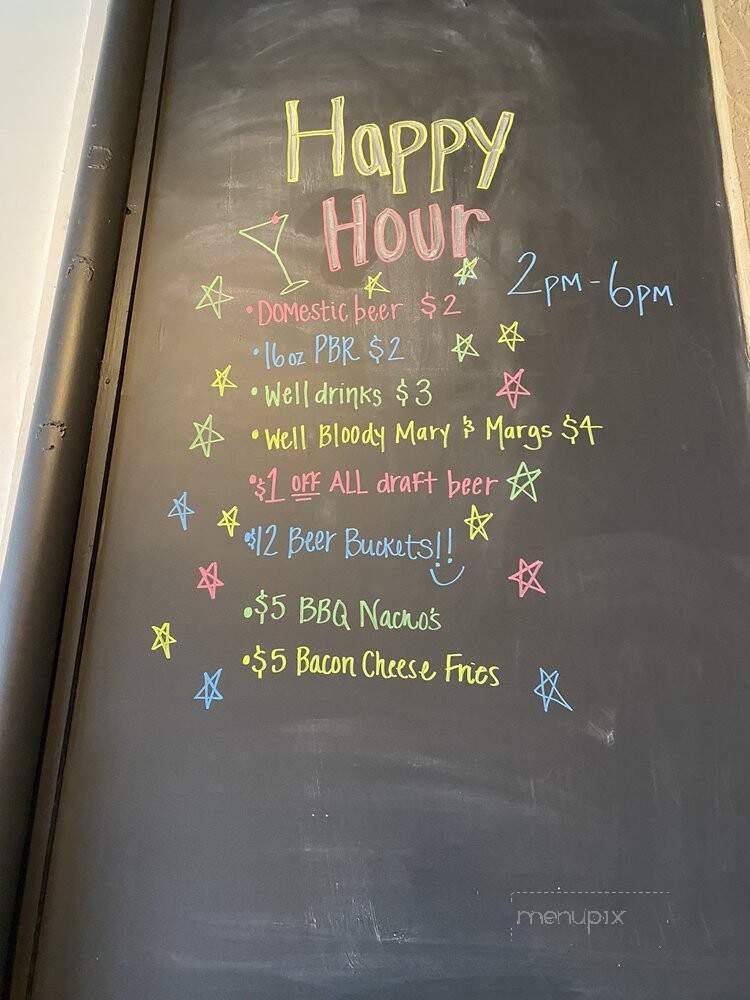 Happy
Hour
2pm-6pm
•Domestic beer $2
•16oz PBR $2
•Well drinks $3
•Well Bloody Mary & Margs $4
•$1 OFF ALL draft beer
•$12 Beer Buckets!!
•$5 BBQ Nacho's
•$5 Bacon Cheese Fries
menupix